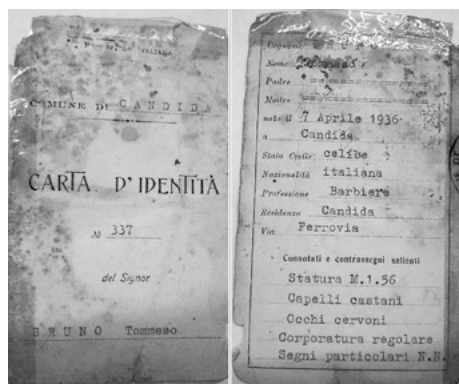 ITALIANA
COMUNE DI CANDIDA
CARTA D'IDENTITÀ
№ 337
del Signor
BRUNO Tommaso
Cognome BRUNO
Nome
Padre
Madre
nato il 7 Aprile 1936
a Candida
Stato Civile celibe
Nazionalità italiana
Professione Barbiere
Residenza Candida
Via Ferrovia
Connotati e contrassegni salienti
Statura M.1.56
Capelli castani
Occhi cervoni
Corporatura regolare
Segni particolari N.N.